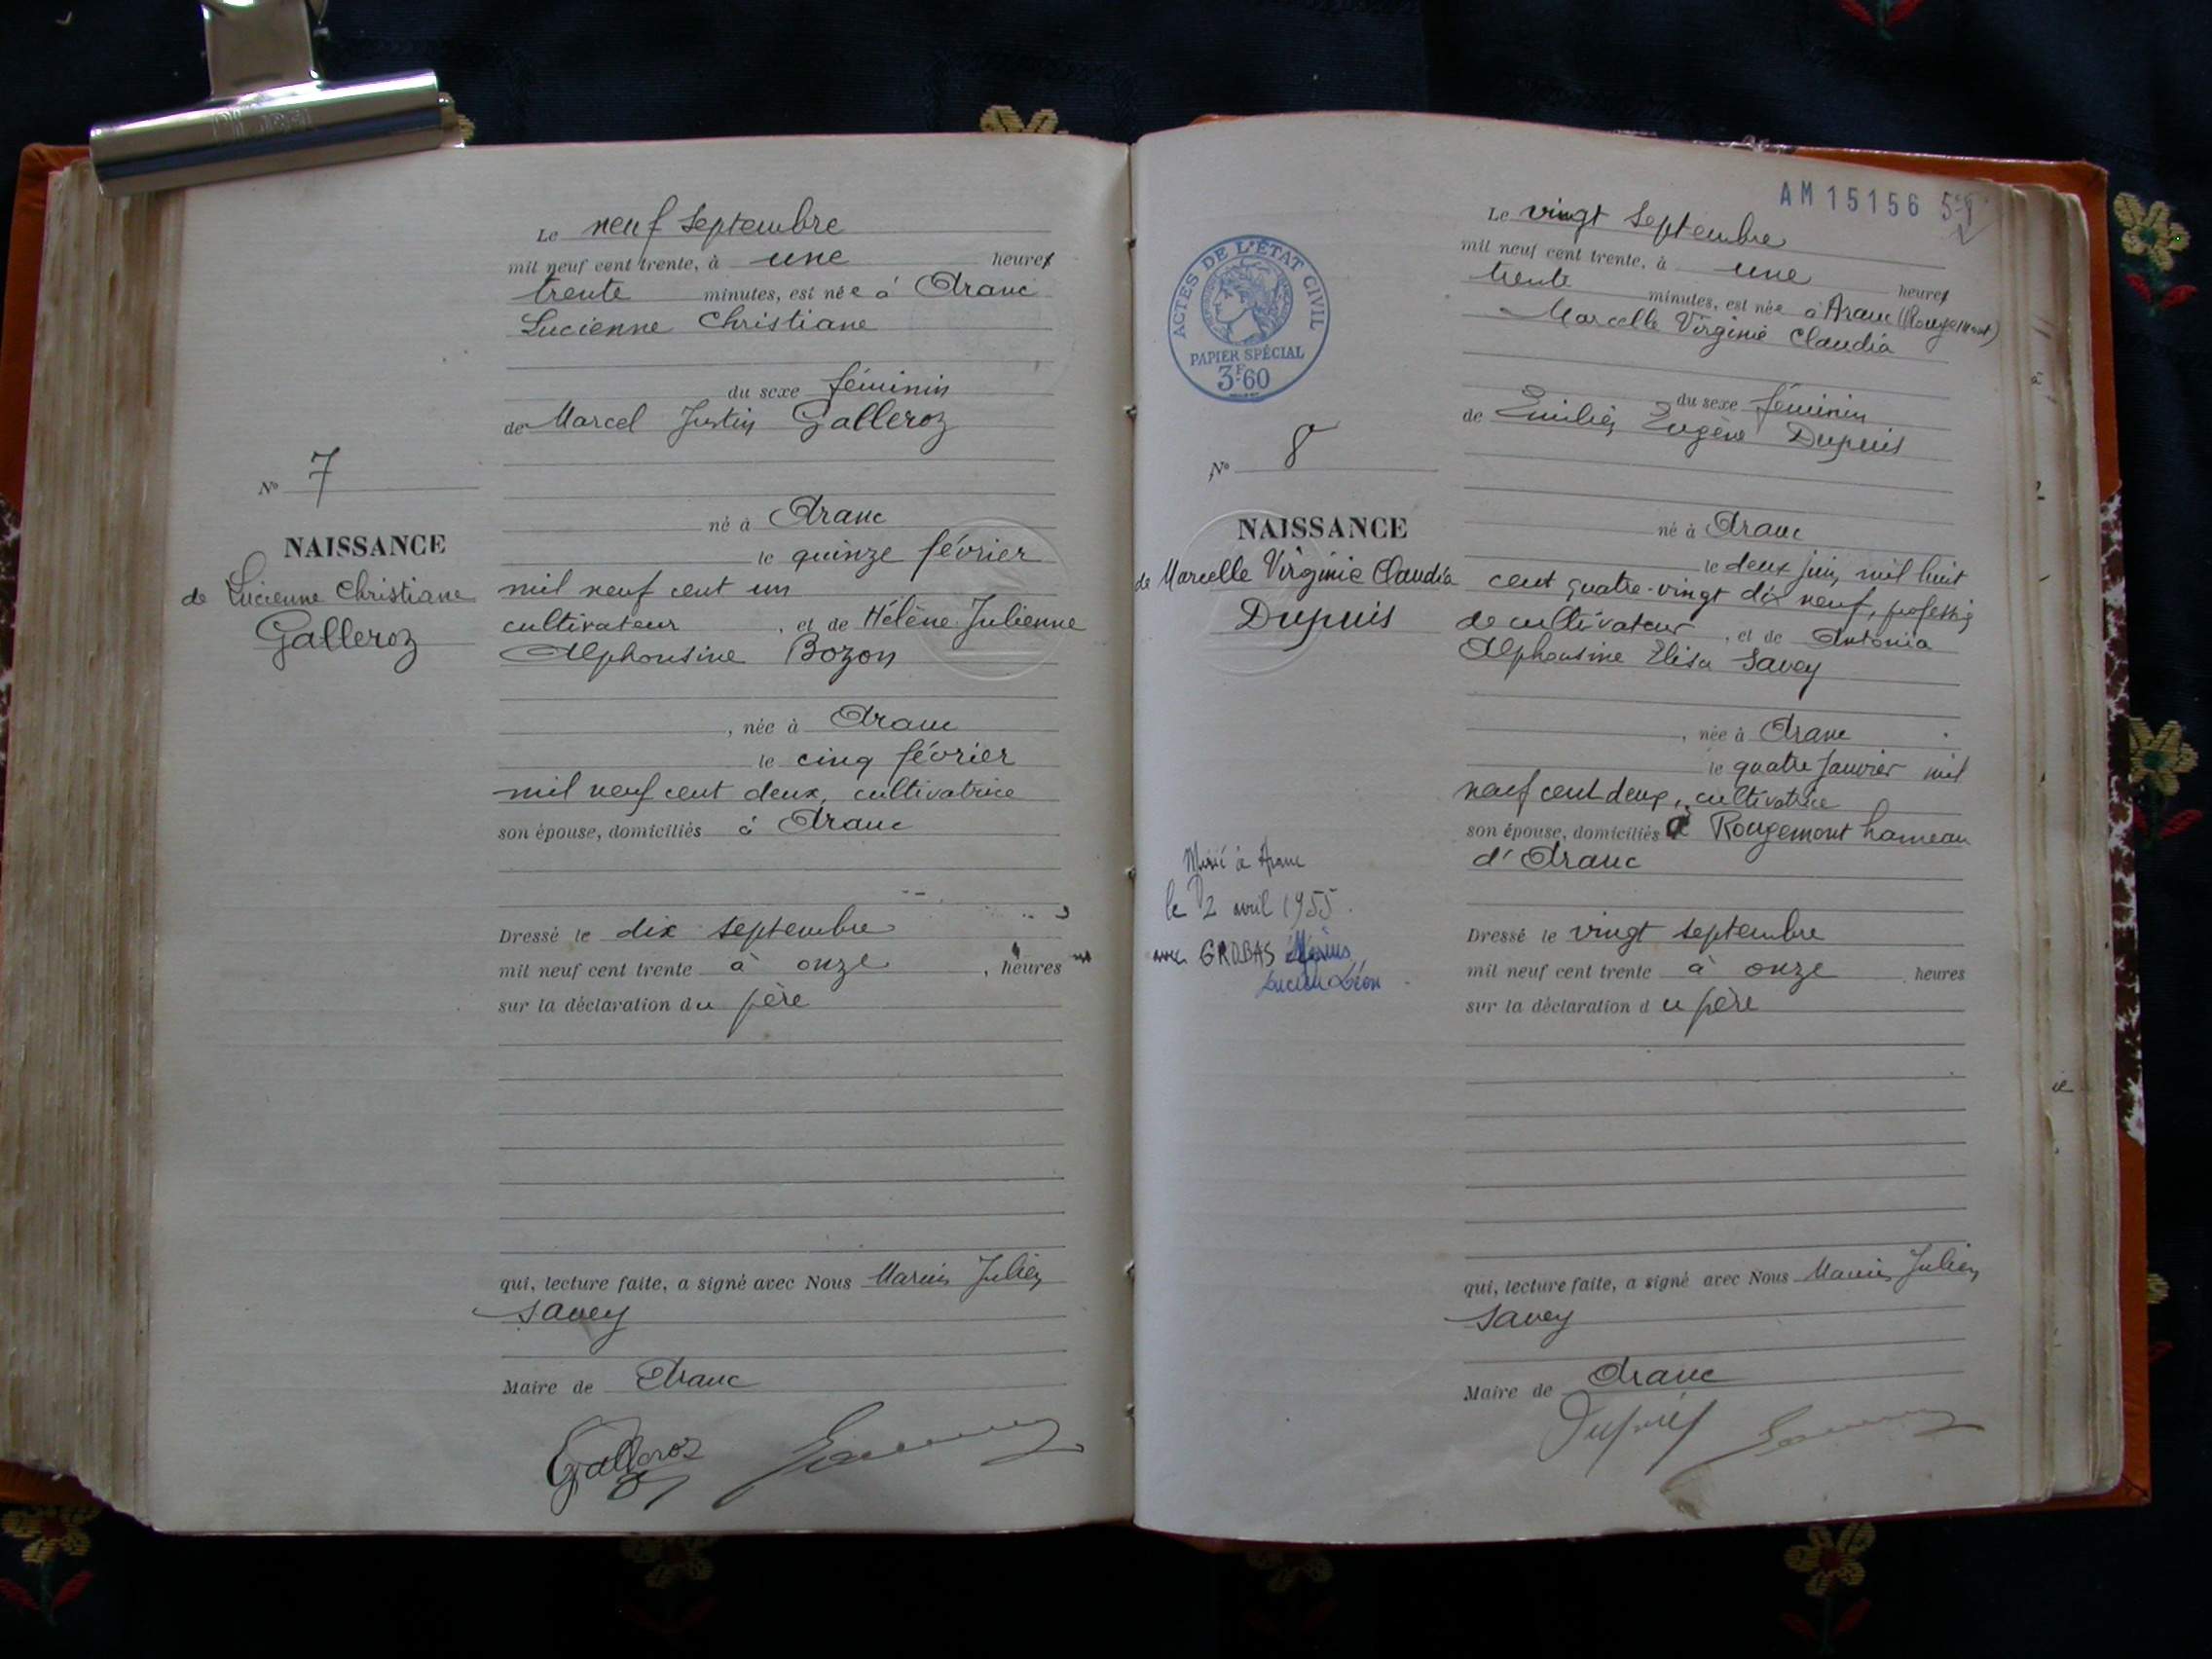 Le neuf Septembre
mil neuf cent trente, à une heures
trente minutes, est née à Aranc
Lucienne Christiane
du sexe féminin
de Marcel Justin Galleroz
N° 7
né à Aranc
NAISSANCE
le quinze février
de Lucienne Christiane
Galleroz
mil neuf cent un
cultivateur, et de Hélène Julienne
Alphonsine Bozon
, née à Aranc
le cinq février
mil neuf cent deux, cultivatrice
son épouse, domiciliés à Aranc
Dressé le dix septembre
mil neuf cent trente à onze, heures
sur la déclaration du père
qui, lecture faite, a signé avec Nous Marius Julien
Savey
Maire de Aranc
Galleroz
AM 15156
ACTES DE L'ÉTAT CIVIL
PAPIER SPÉCIAL
3F60
Le vingt Septembre
mil neuf cent trente, à une heures
trente minutes, est née à Aranc (Rougemont)
Marcelle Virginie Claudia
du sexe féminin
de Emilien Eugène Dupuis
N° 8
né à Aranc
NAISSANCE
de Marcelle Virginie Claudia
Dupuis
le deux juin mil huit
cent quatre-vingt dix neuf, profession
de cultivateur, et de Antonia
Alphonsine Elisa Savey
, née à Aranc
le quatre janvier mil
neuf cent deux, cultivatrice
son épouse, domiciliés à Rougemont hameau
d'Aranc
Marié à Aranc
le 2 avril 1955.
avec GROBAS Marius
Lucien Léon
Dressé le vingt septembre
mil neuf cent trente à onze heures
sur la déclaration du père
qui, lecture faite, a signé avec Nous Marius Julien
Savey
Maire de Aranc
Dupuis